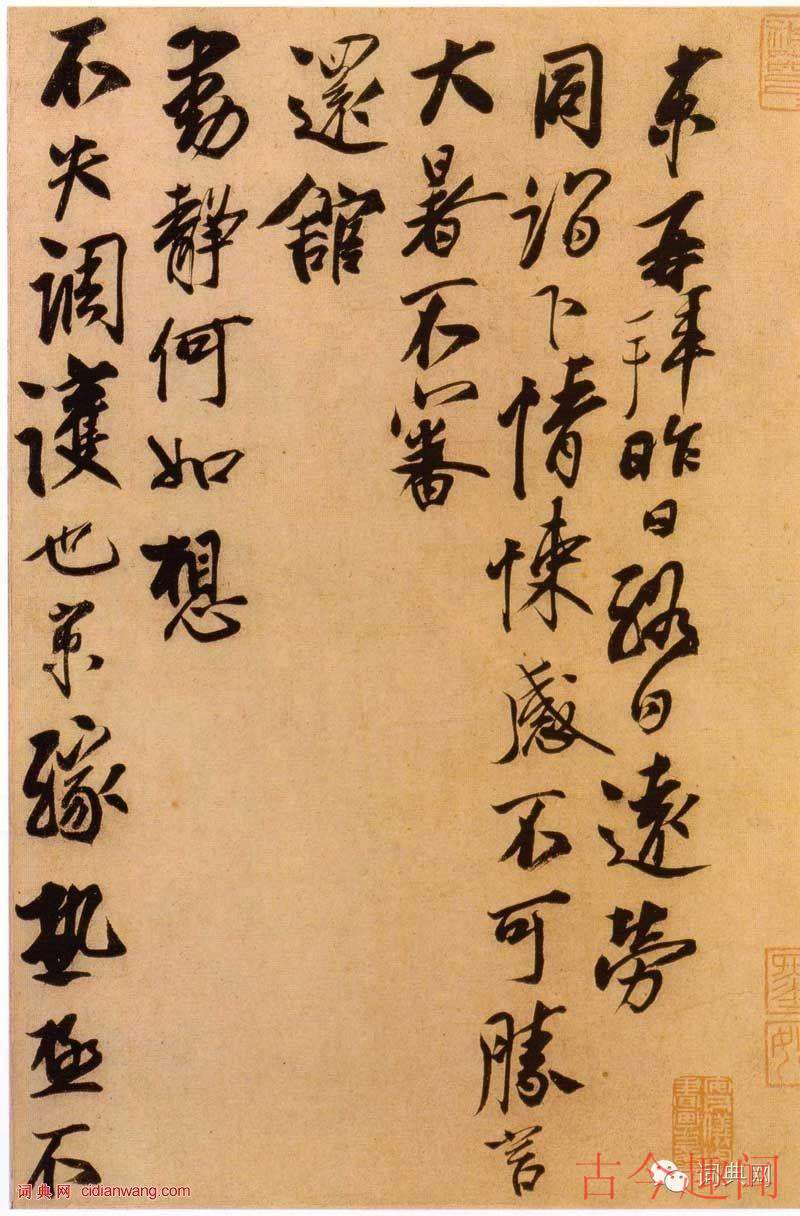 京再拜昨日終日遠勞
同詣下情悚感不可勝言
大暑不審
還館
動靜何如想
不失調護也京緣熱極不
词典网 cidianwang.com
古今趣闻
词典网